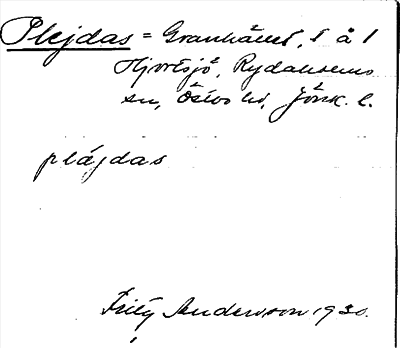 Plejdas = Granhäms, 1 å 1
Hjortsjö, Rydaholms
sn, Östbo hd, Jönk. l.
plájdas
Frity Anderson 1930.